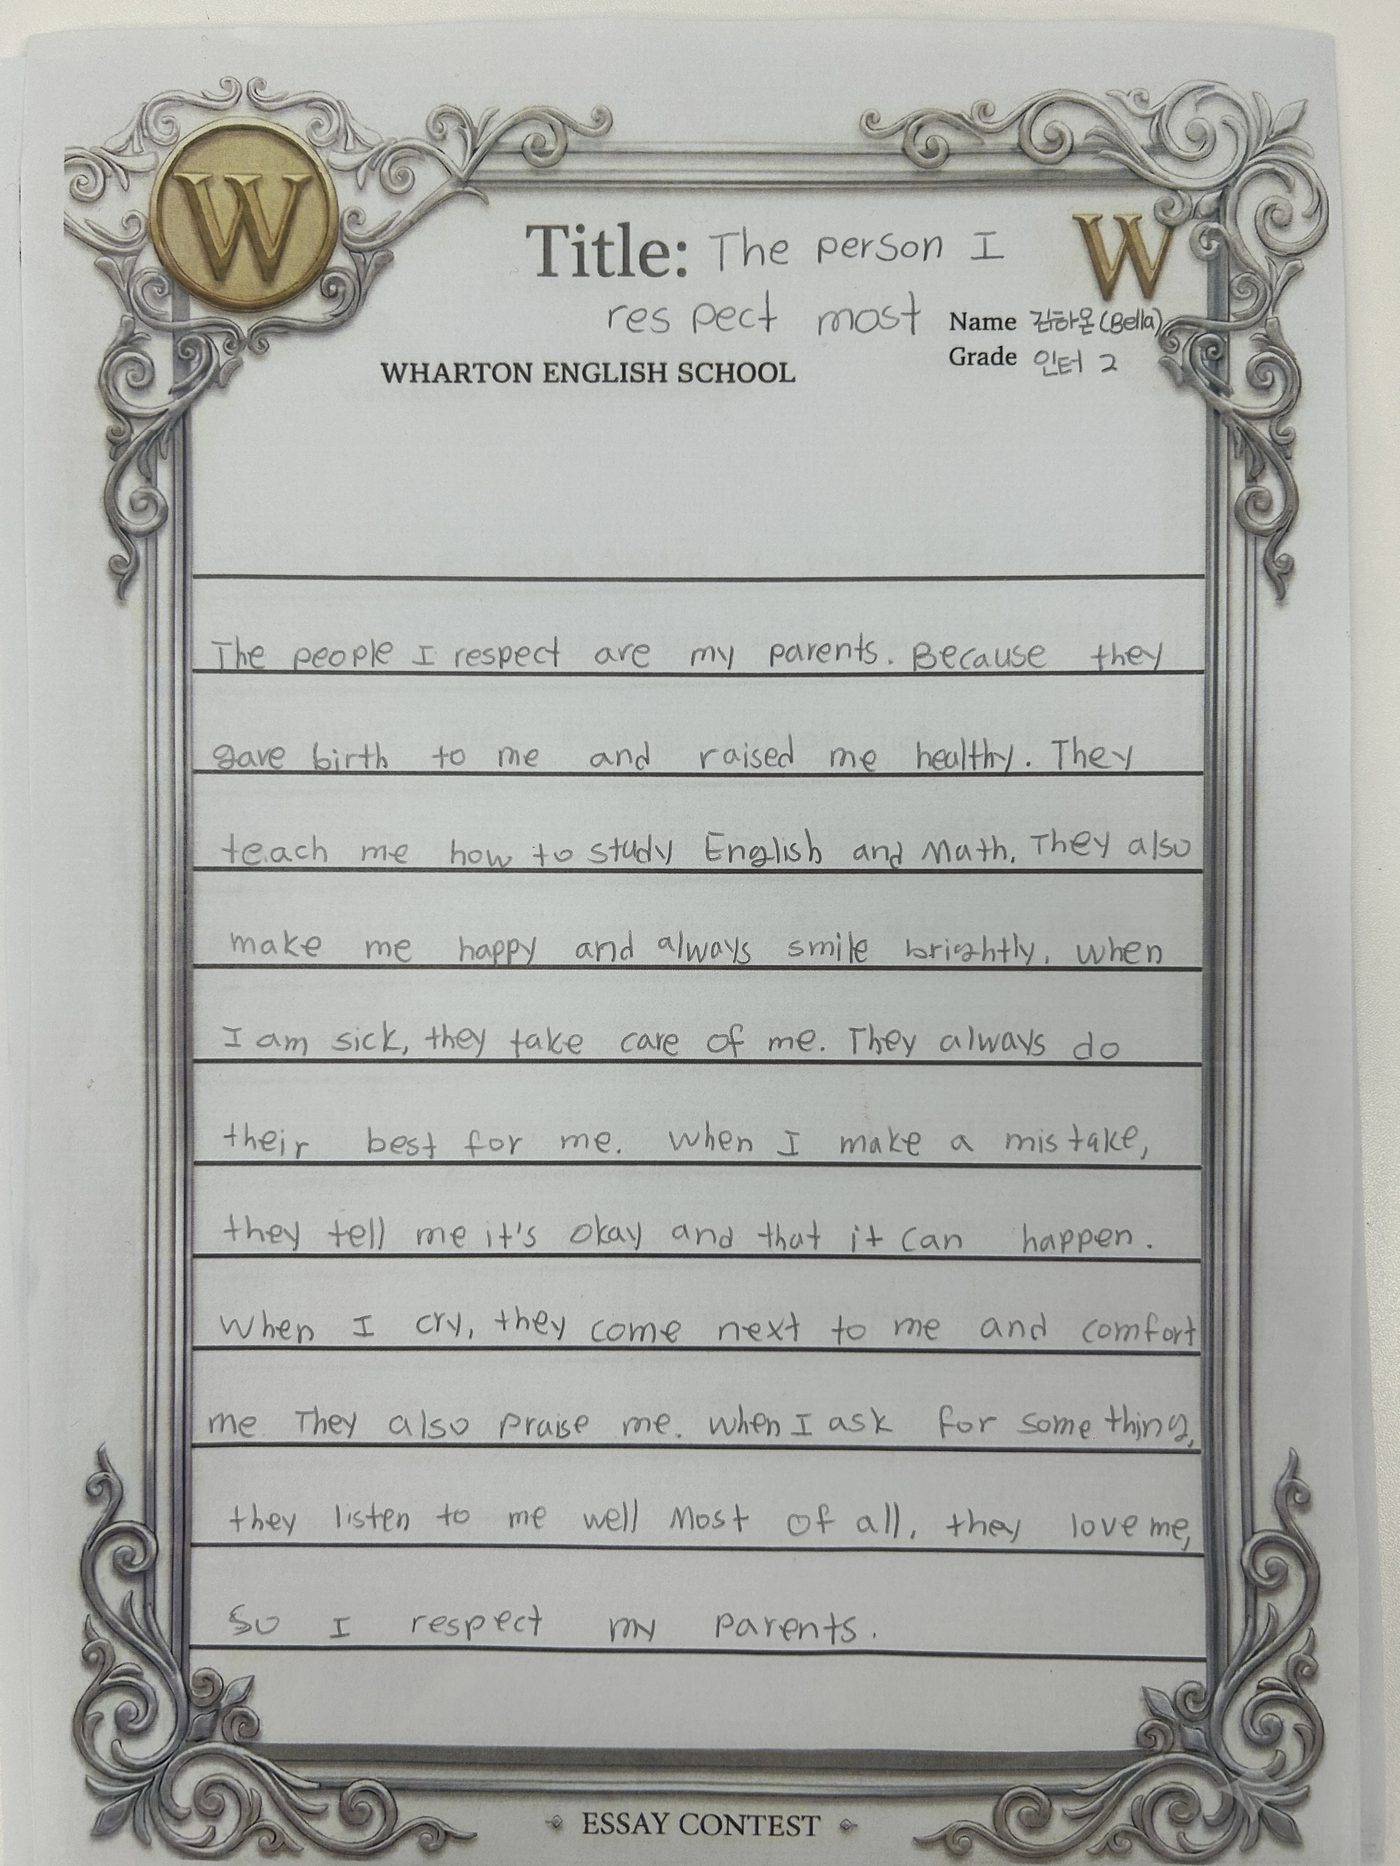 W
W
Title: The person I
respect most
Name 김하온(Bella)
Grade 인터 2
WHARTON ENGLISH SCHOOL
The people I respect are my parents. Because they
gave birth to me and raised me healthy. They
teach me how to study English and Math. They also
make me happy and always smile brightly. when
I am sick, they take care of me. They always do
their best for me. when I make a mistake,
they tell me it's okay and that it can happen.
when I cry, they come next to me and comfort
me. They also praise me. when I ask for something,
they listen to me well Most of all, they love me,
so I respect my parents.
ESSAY CONTEST